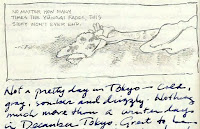 NO MATTER HOW MANY
TIMES THE
THIS
WON'T EVER
Not a pretty day in Tokyo – cold,
gray, sombre and drizzly. Nothing
much more than a winter day
in December Tokyo. Great to